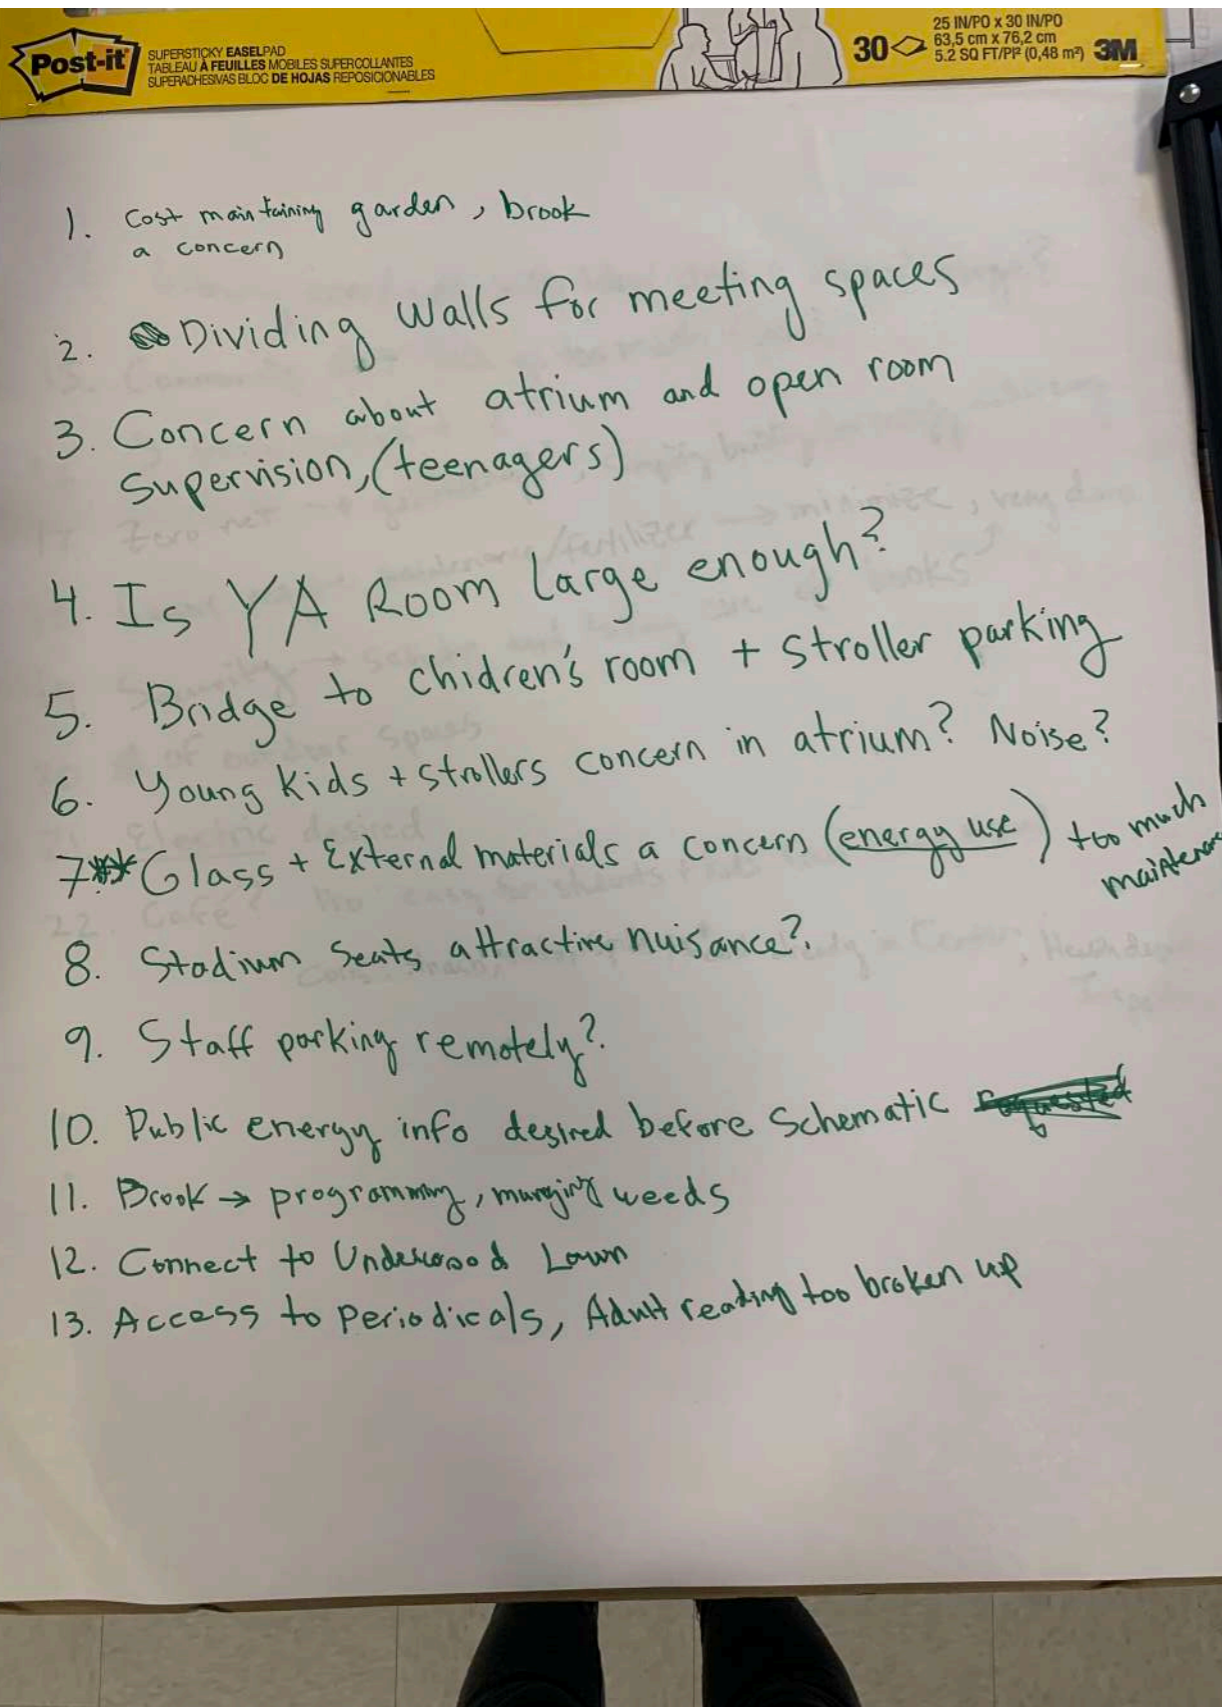 Post-it
SUPERSTICKY EASELPAD
TABLEAU À FEUILLES MOBILES SUPERCOLLANTES
SUPERADHESIVAS BLOC DE HOJAS REPOSICIONABLES
30
25 IN/PO x 30 IN/PO
63,5 cm x 76,2 cm
5.2 SQ FT/PI² (0,48 m²)
3M
1. Cost maintaining garden, brook
a concern
2. Dividing Walls for meeting spaces
3. Concern about atrium and open room
Supervision, (teenagers)
4. Is YA Room Large enough?
5. Bridge to chidren's room + stroller parking
6. Young Kids + strollers concern in atrium? Noise?
7.** Glass + External materials a concern (energy use) too much
8. Stadium Seats attractive nuisance?
9. Staff parking remotely?
10. Public energy info desired before Schematic requested
11. Brook → programming, weeds
12. Connect to Underwood Lawn
13. Access to periodicals, Adult reading too broken up